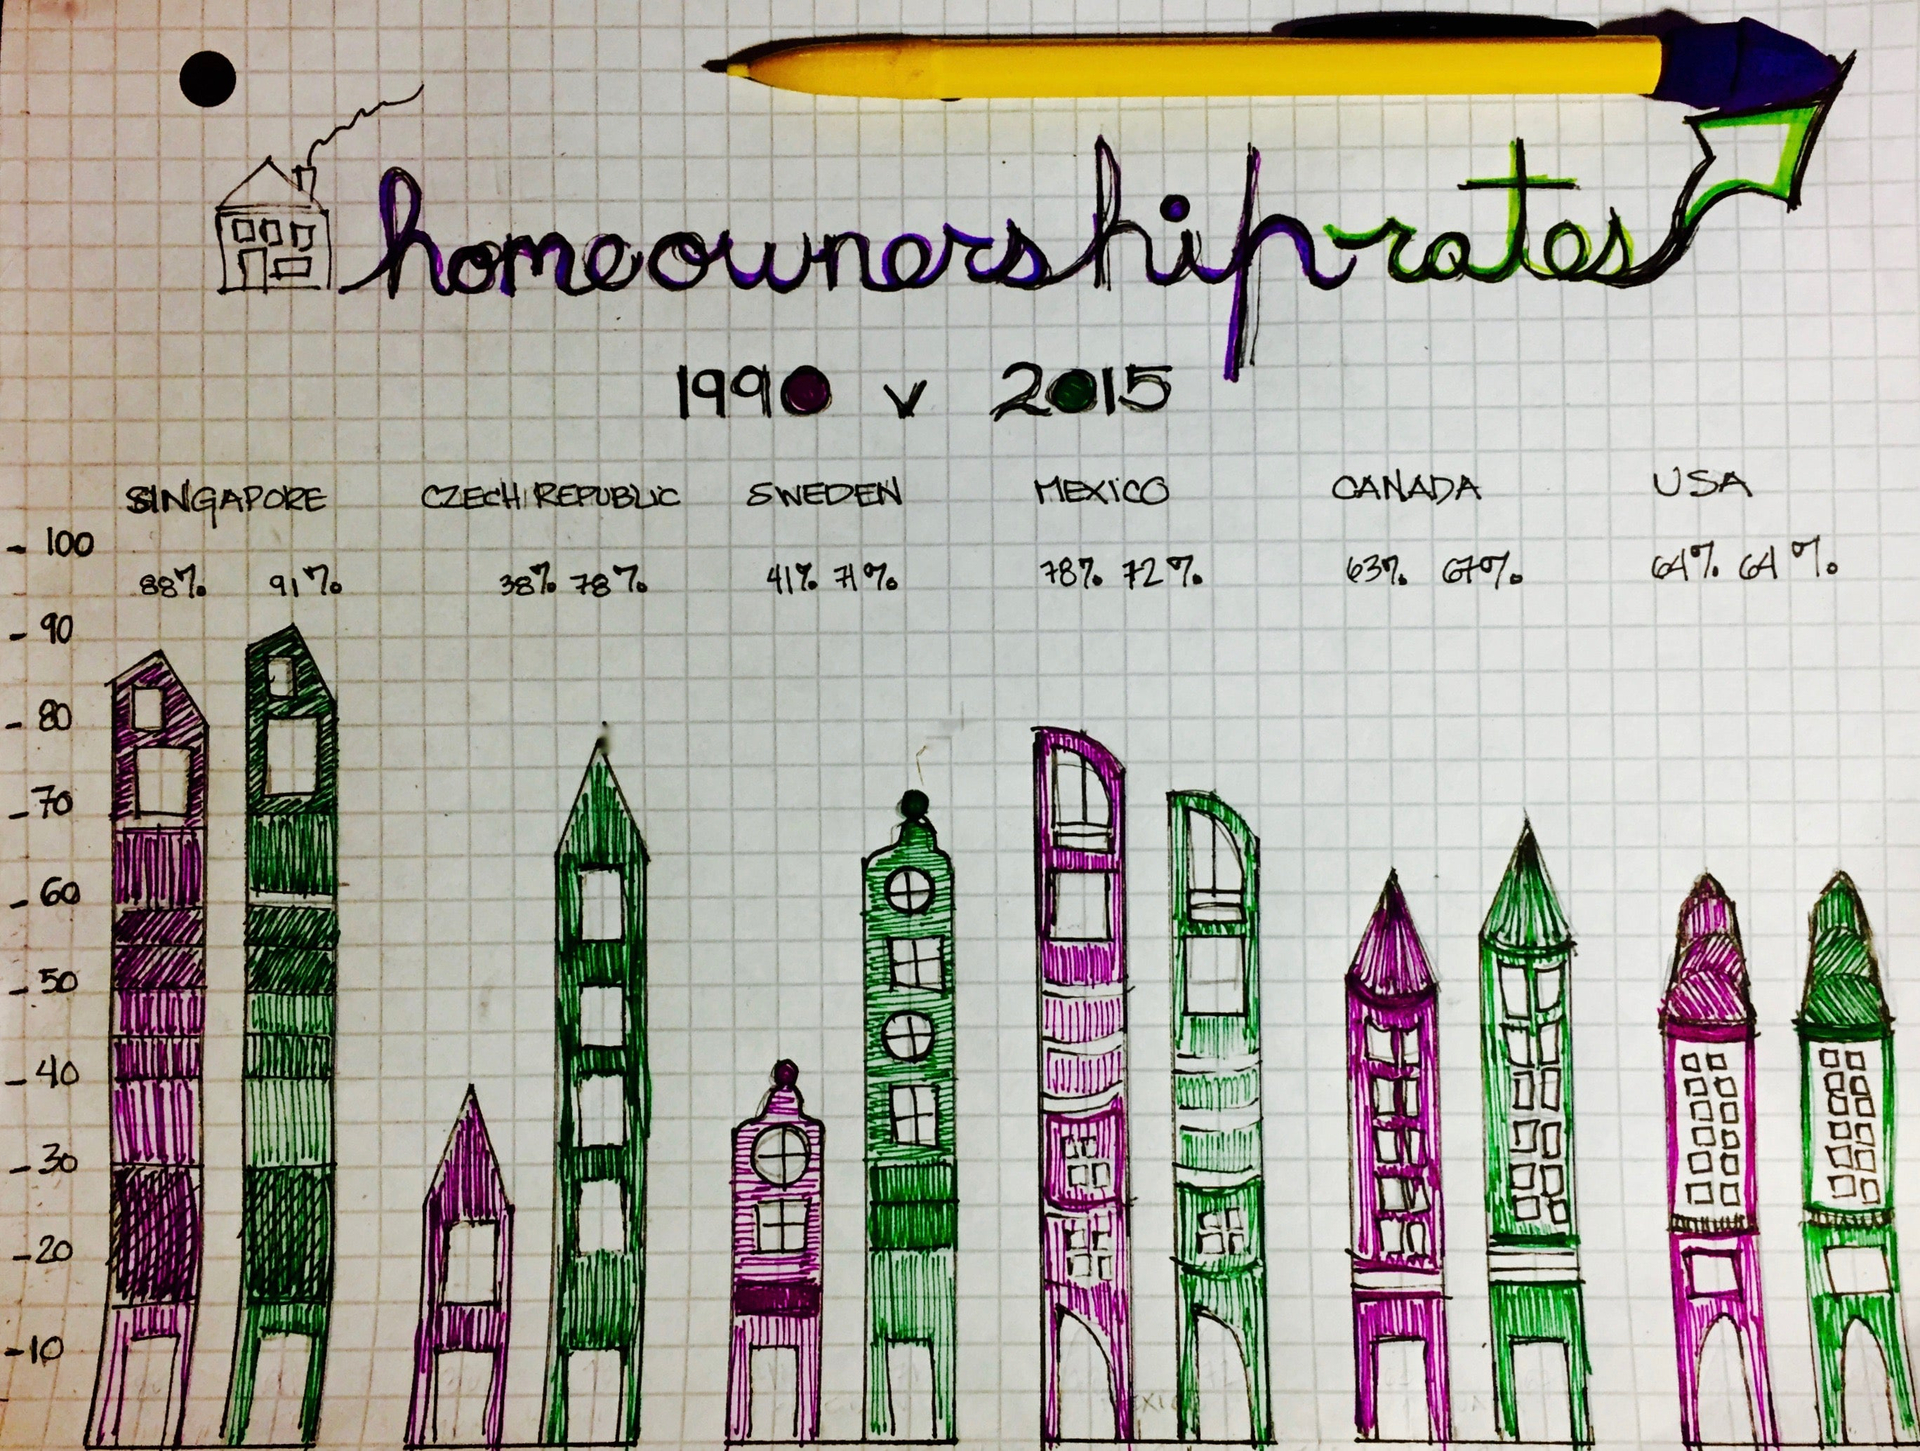 homeownership rates
1990 v 2015
SINGAPORE CZECH REPUBLIC SWEDEN MEXICO CANADA USA
100
88% 91% 38% 78% 41% 71% 78% 72% 63% 67% 64% 64%
90
80
70
60
50
40
30
20
10